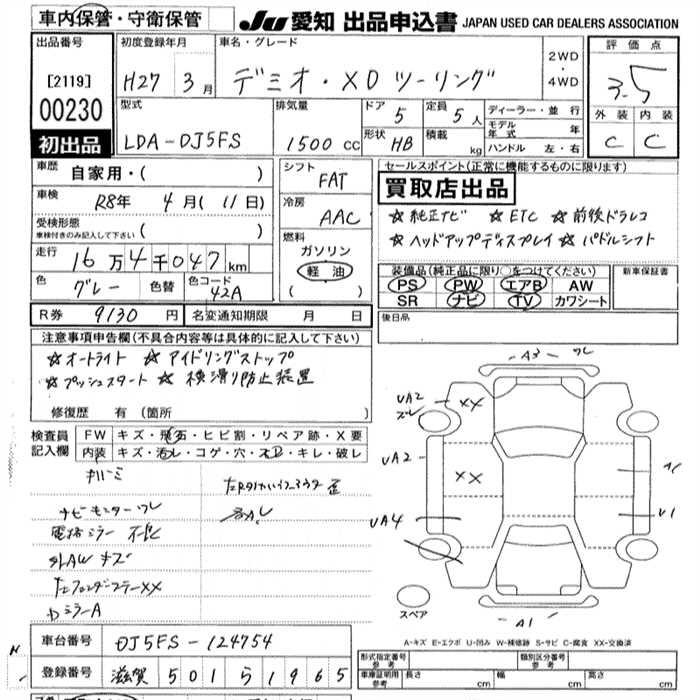 車内保管・守衛保管
JU 愛知 出品申込書 JAPAN USED CAR DEALERS ASSOCIATION
出品番号 初度登録年月 車名・グレード 評価点
[2119] H27年 3月 デミオ・XDツーリング 2WD・4WD 3.5
00230 型式 排気量 ドア 定員 ディーラー・並行 外装 内装
初出品 LDA-DJ5FS 1500cc 5 5人 モデル年式 年 C C
形状 HB 積載 kg ハンドル 左・右
車歴 自家用・( ) シフト FAT セールスポイント(正常に機能するものに限ります)
車検 R8年 4月(11日) 冷房 AAC 買取店出品
受検形態 車検付きのみ記入して下さい ( ) ☆純正ナビ ☆ETC ☆前後ドラレコ
走行 16万4千047km 燃料 ガソリン 軽油 ( ) ☆ヘッドアップディスプレイ ☆パドルシフト
色 グレー 色替 色コード 42A 装備品(純正品に限り○をつけてください) 新車保証書
PS PW エアB AW
SR ナビ TV カワシート
R券 9130円 名変通知期限 月 日 後日品
注意事項申告欄(不具合内容等は具体的に記入して下さい)
☆オートライト ☆アイドリングストップ
☆プッシュスタート ☆横滑り防止装置
修復歴 有 (箇所
検査員記入欄 FW キズ・飛石・ヒビ割・リペア跡・X要
内装 キズ・汚レ・コゲ・穴・スレ・キレ・破レ
ナビモニターワレ
電格ミラー 不良
SRAW キズ
DミラーA
A3 ワレ
UA2 XX
ズレ
UA2 XX A1
UA4 U1
スペア A1
A-キズ E-エクボ U-凹み W-補修跡 S-サビ C-腐食 XX-交換済
車台番号 DJ5FS-124754
登録番号 滋賀 501 ら 1965
形式指定番号 参考 類別区分番号 参考
車庫証明用 参考 長さ cm 幅 cm 高さ cm